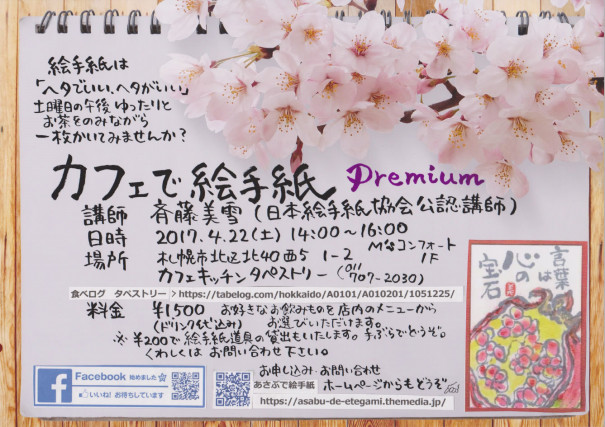 絵手紙は
「ヘタでいい、ヘタがいい」
土曜日の午後 ゆったりと
お茶をのみながら
一枚かいてみませんか？
カフェで絵手紙 Premium
講師 斉藤美雪（日本絵手紙協会公認講師）
日時 2017.4.22(土) 14:00〜16:00
場所 札幌市北区北40西5 1-2 M'sコンフォート 1F
カフェキッチンタペストリー（011 707-2030）
食べログ タペストリー > https://tabelog.com/hokkaido/A0101/A010201/1051225/
料金 ¥1500 お好きなお飲みものを店内のメニューから
(ドリンク代込み) お選びいただけます。
※ ¥200で絵手紙道具の貸出もいたします。手ぶらでどうぞ。
くわしくは お問い合わせ下さい。
お申し込み・お問い合わせ
Facebook 始めました☆
いいね! お待ちしています
あさぶで絵手紙 ホームページからもどうぞ
https://asabu-de-etegami.themedia.jp/
言葉は
心の
宝石